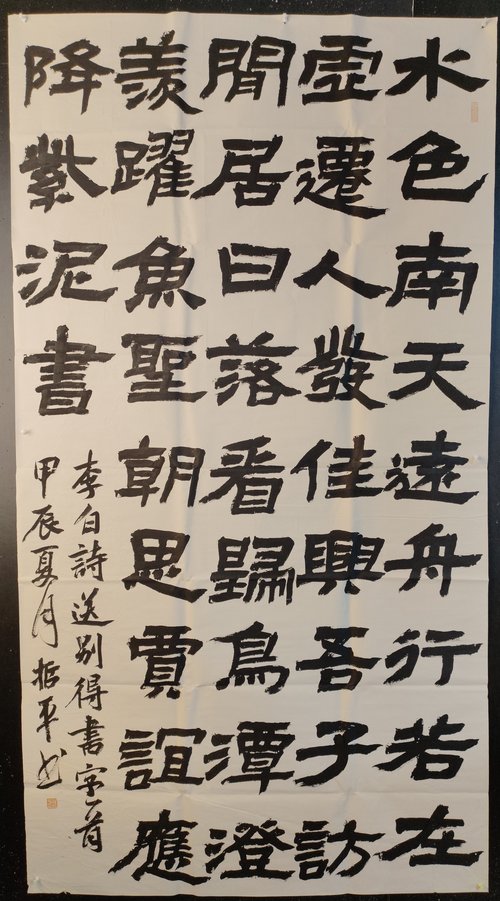 水色南天遠舟行若在
虛遷人發佳興吾子訪
閒居日落看歸鳥潭澄
羨躍魚聖朝思賈誼應
降紫泥書
李白詩送别得書字一首
甲辰夏月平书